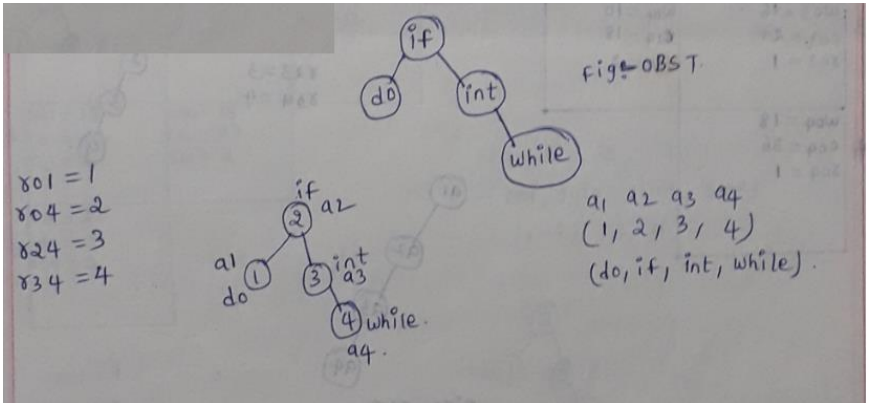 if
do
int
while
Fig:- OBST.
r01 = 1
r04 = 2
r24 = 3
r34 = 4
if
2 a2
a1
1
do
3 int
a3
4 while.
a4.
a1 a2 a3 a4
(1, 2, 3, 4)
(do, if, int, while).